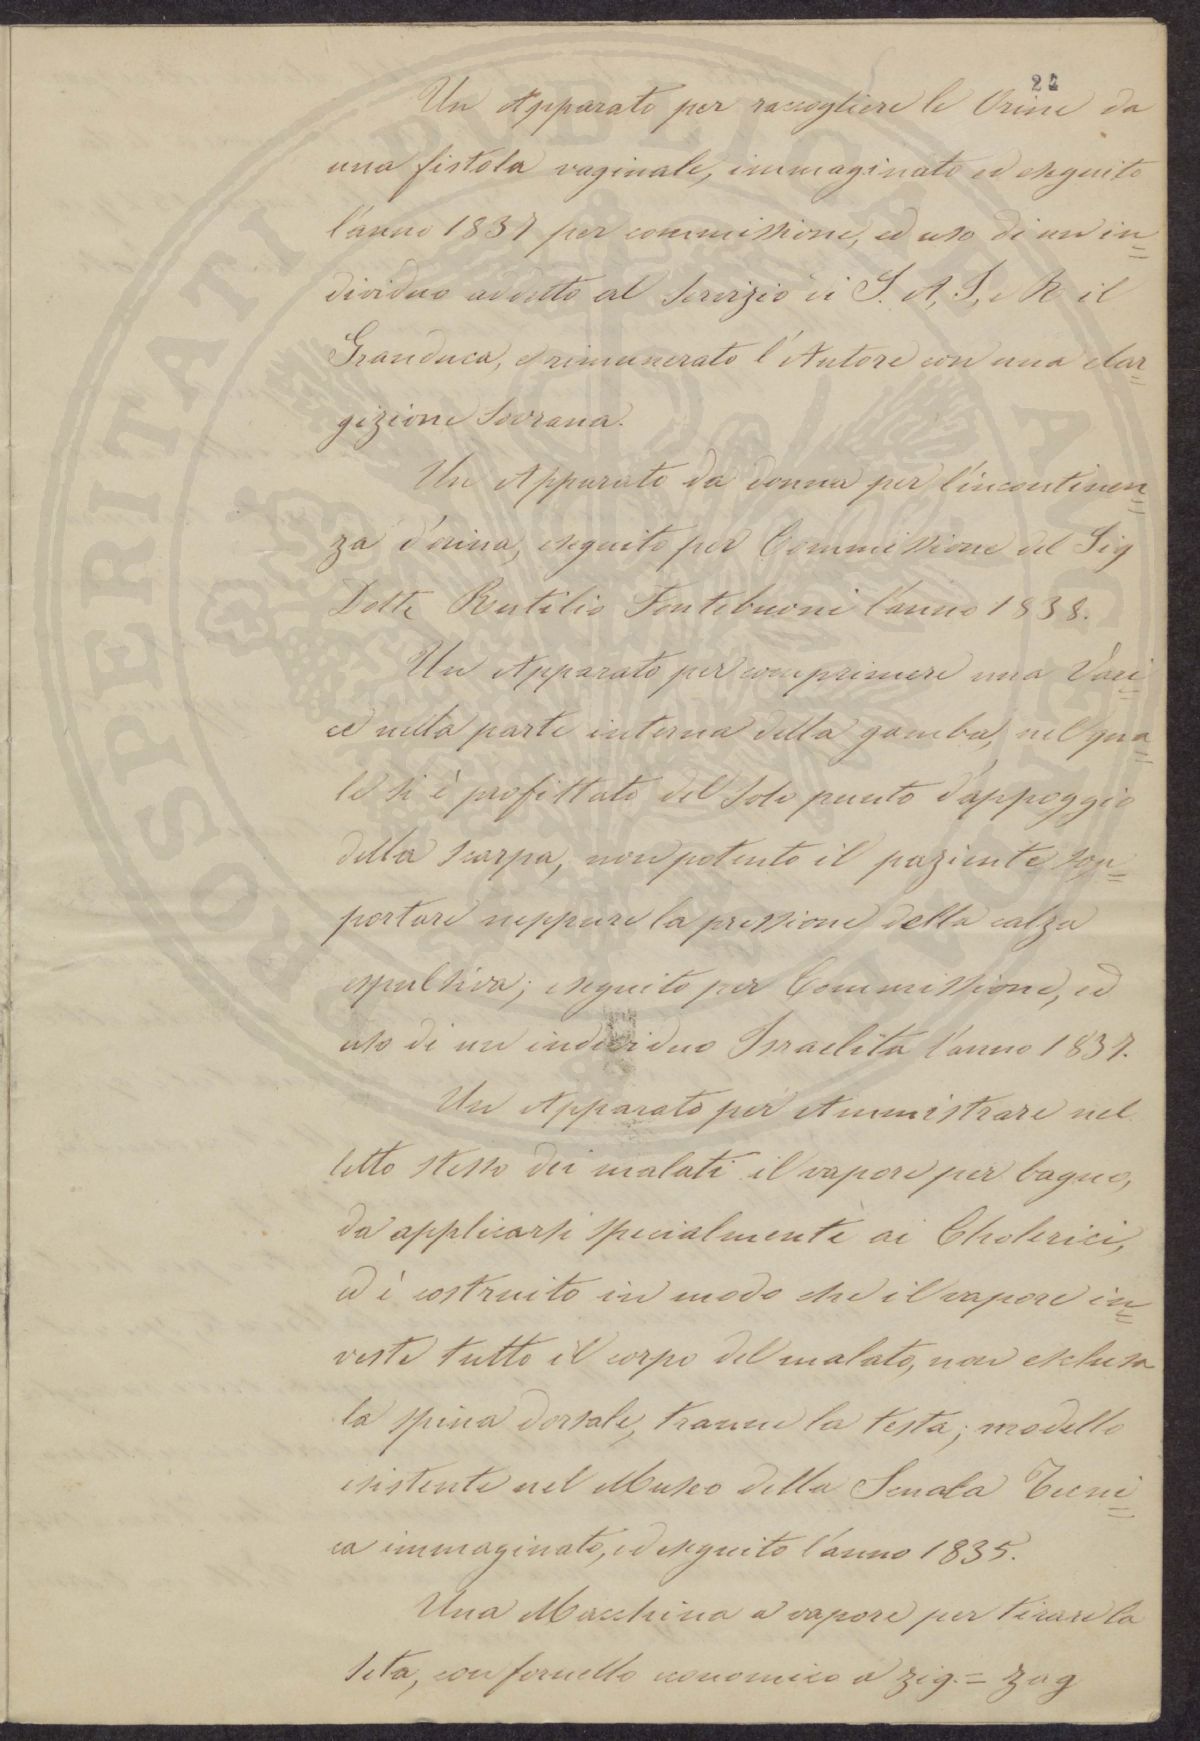 24
Un Apparato per raccogliere le Orine da
una fistola vaginale, immaginato ed eseguito
l'anno 1837 per commissione, ed uso di un in=
dividuo addetto al Servizio di S. A. I. e R il
Granduca, e rimunerato l'Autore con una elar=
gizione Sovrana.
Un Apparato da donna per l'incontinen=
za d'orina, eseguito per Commissione del Sig
Dott. Rutilio Fontebuoni l'anno 1838.
Un Apparato per comprimere una Vari=
ce nella parte interna della gamba, nel qua=
le si è profittato del solo punto d'appoggio
della scarpa, non potento il paziente sop=
portare neppure la pressione della calza
espulsiva; eseguito per Commissione, ed
uso di un individuo Israelita l'anno 1837.
Un Apparato per Amministrare nel
letto stesso dei malati il vapore per bagno,
da applicarsi specialmente ai Cholerici,
ed è costruito in modo che il vapore in=
veste tutto il corpo del malato, non esclusa
la spina dorsale, tranne la testa; modello
esistente nel Museo della Scuola Tecni=
ca immaginato, ed eseguito l'anno 1835.
Una Macchina a vapore per tirare la
seta, con fornello economico a zig.= zag
PROSPERITATI PUBLICAE AUGENDAE